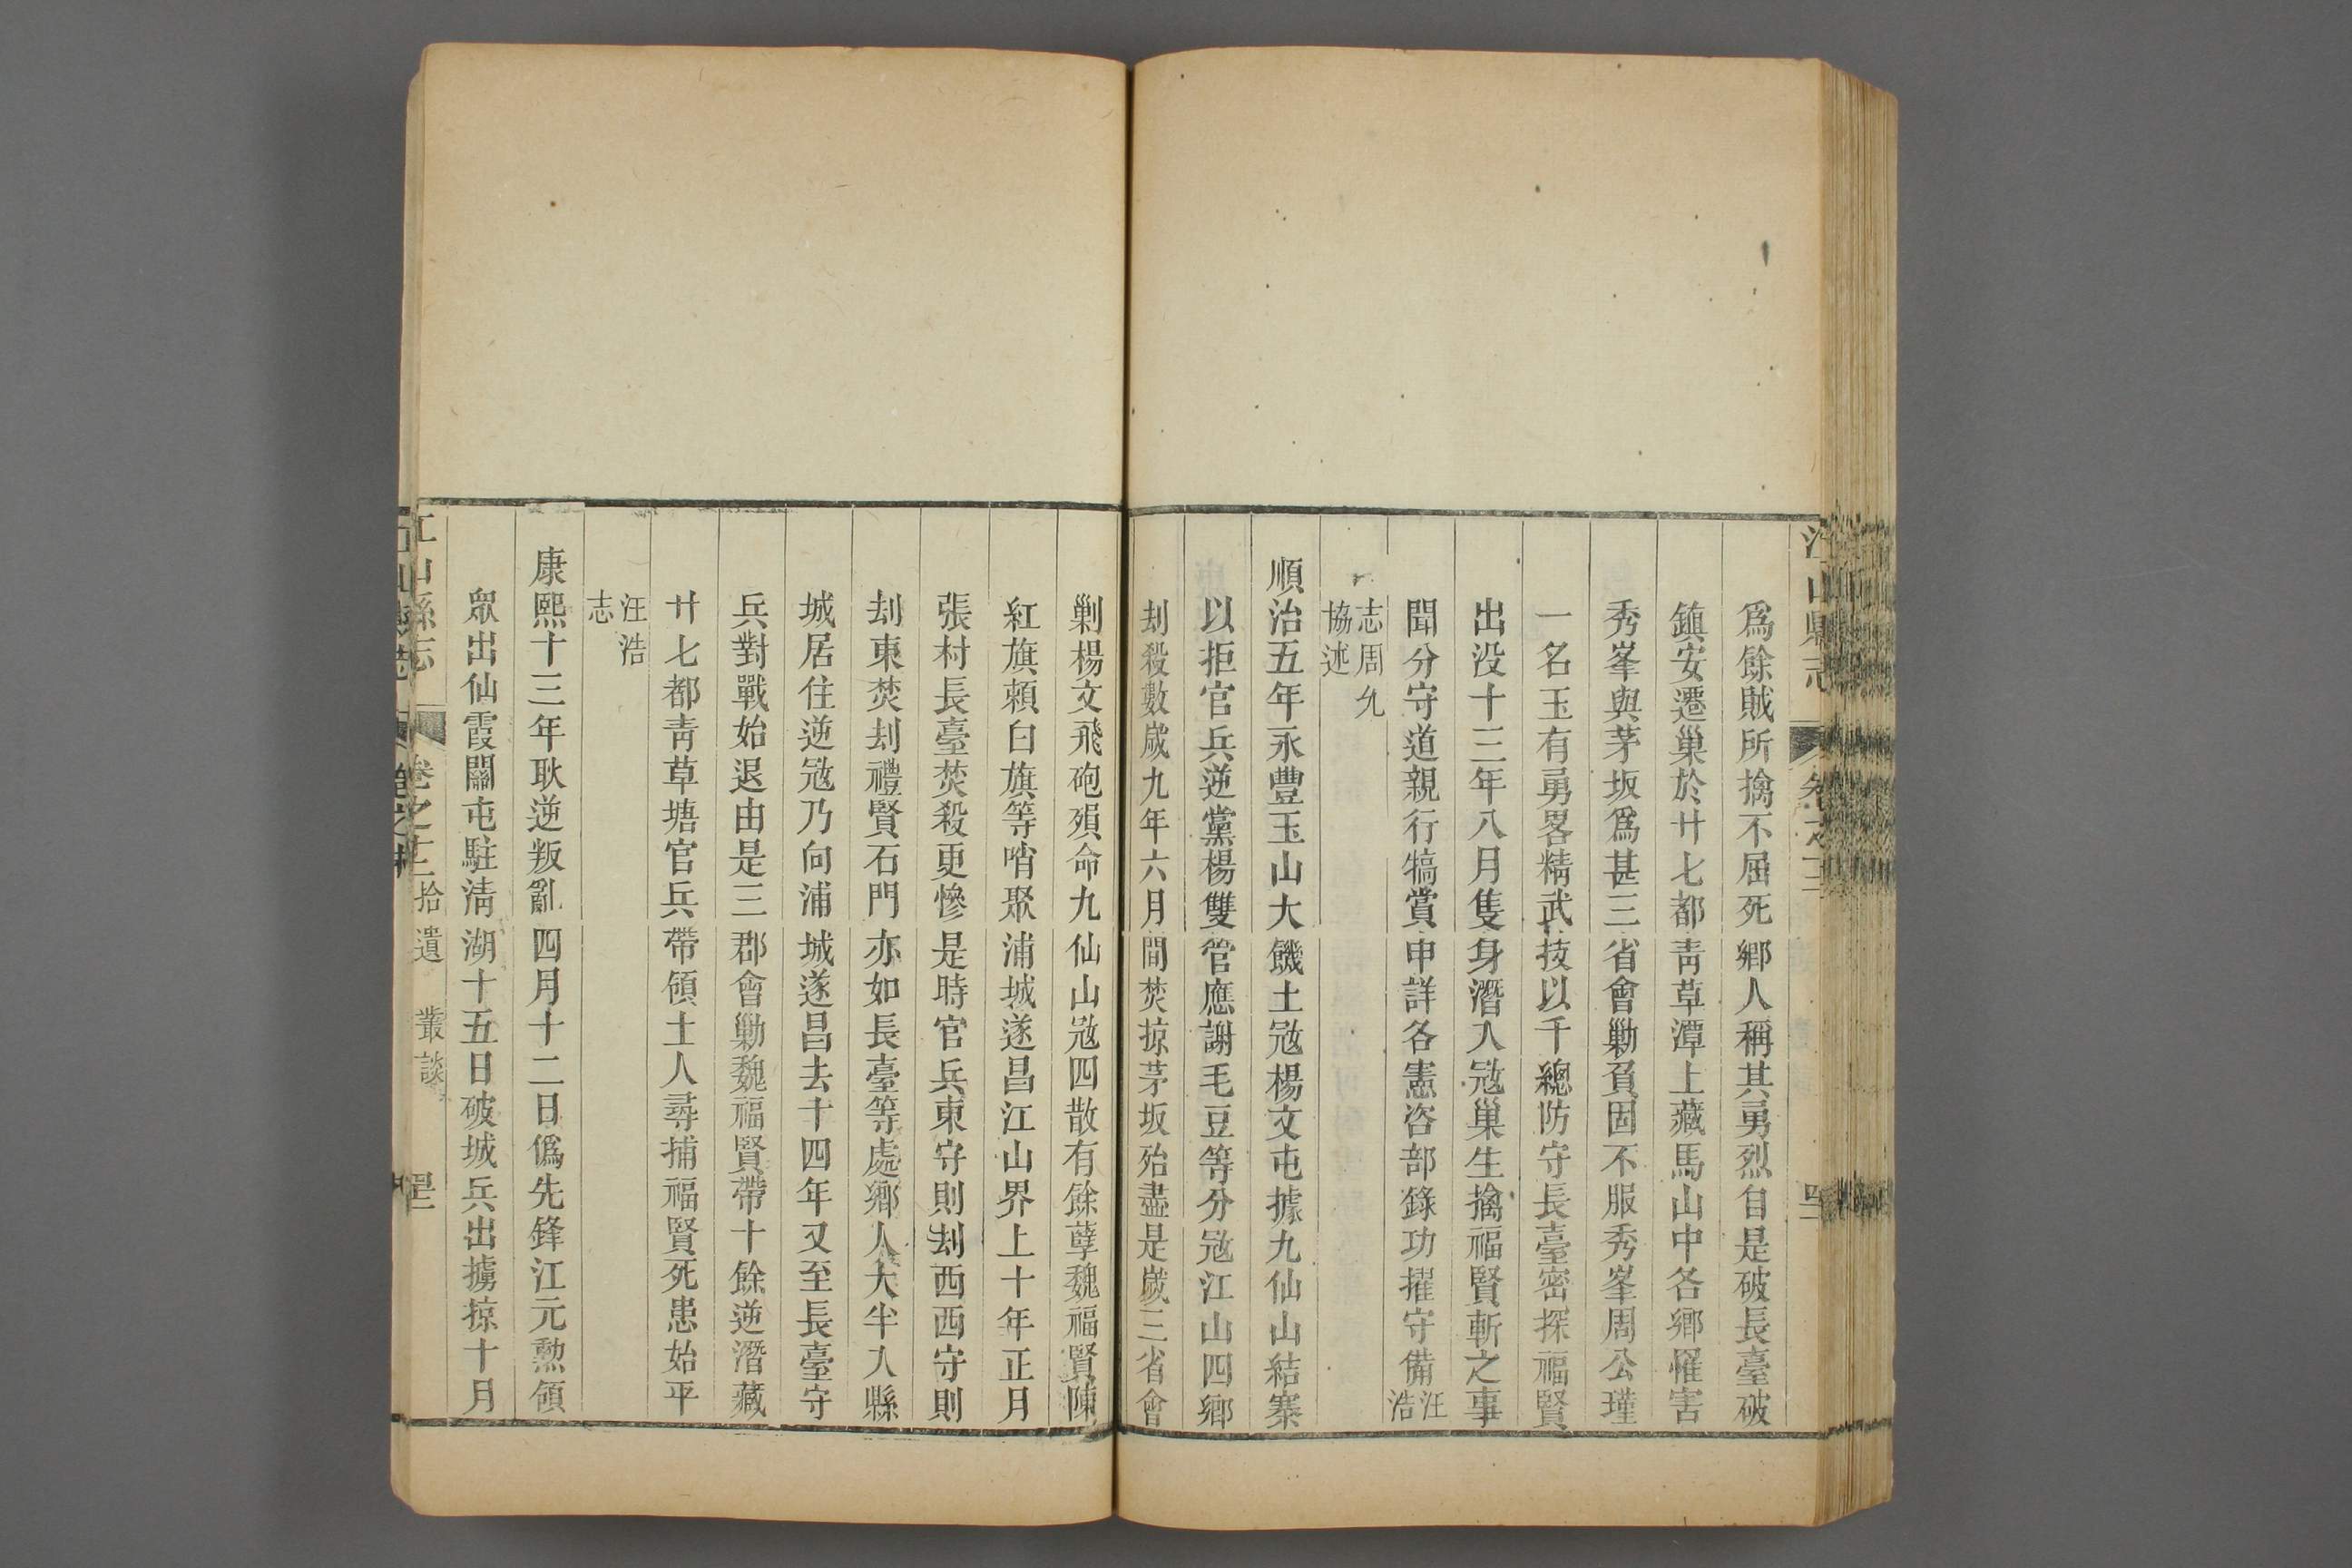 江山縣志
卷之十二
爲餘賊所擒不屈死鄉人稱其勇烈自是破長臺破
鎮安遷巢於廿七都靑草潭上藏馬山中各鄉罹害
秀峯與茅坂爲甚三省會勦負固不服秀峯周公瑾
一名玉有勇畧精武技以千總防守長臺密探福賢
出没十三年八月隻身潛入冦巢生擒福賢斬之事
聞分守道親行犒賞申詳各憲咨部錄功擢守備汪浩
志周允
協述
順治五年永豐玉山大饑土冦楊文屯據九仙山結寨
以拒官兵逆黨楊雙管應謝毛豆等分冦江山四鄉
刦殺數歲九年六月間焚掠茅坂殆盡是歲三省會
剿楊文飛砲殞命九仙山冦四散有餘孽魏福賢陳
紅旗頼白旗等哨聚浦城遂昌江山界上十年正月
張村長臺焚殺更慘是時官兵東守則刦西西守則
刦東焚刦禮賢石門亦如長臺等處鄉人大半入縣
城居住逆冦乃向浦城遂昌去十四年又至長臺守
兵對戰始退由是三郡會勦魏福賢帶十餘逆潛藏
廿七都靑草塘官兵帶領土人尋捕福賢死患始平
汪浩
志
康熙十三年耿逆叛亂四月十二日僞先鋒江元勲領
眾出仙霞關屯駐淸湖十五日破城兵出擄掠十月
江山縣志
卷之十二
拾遺
叢談